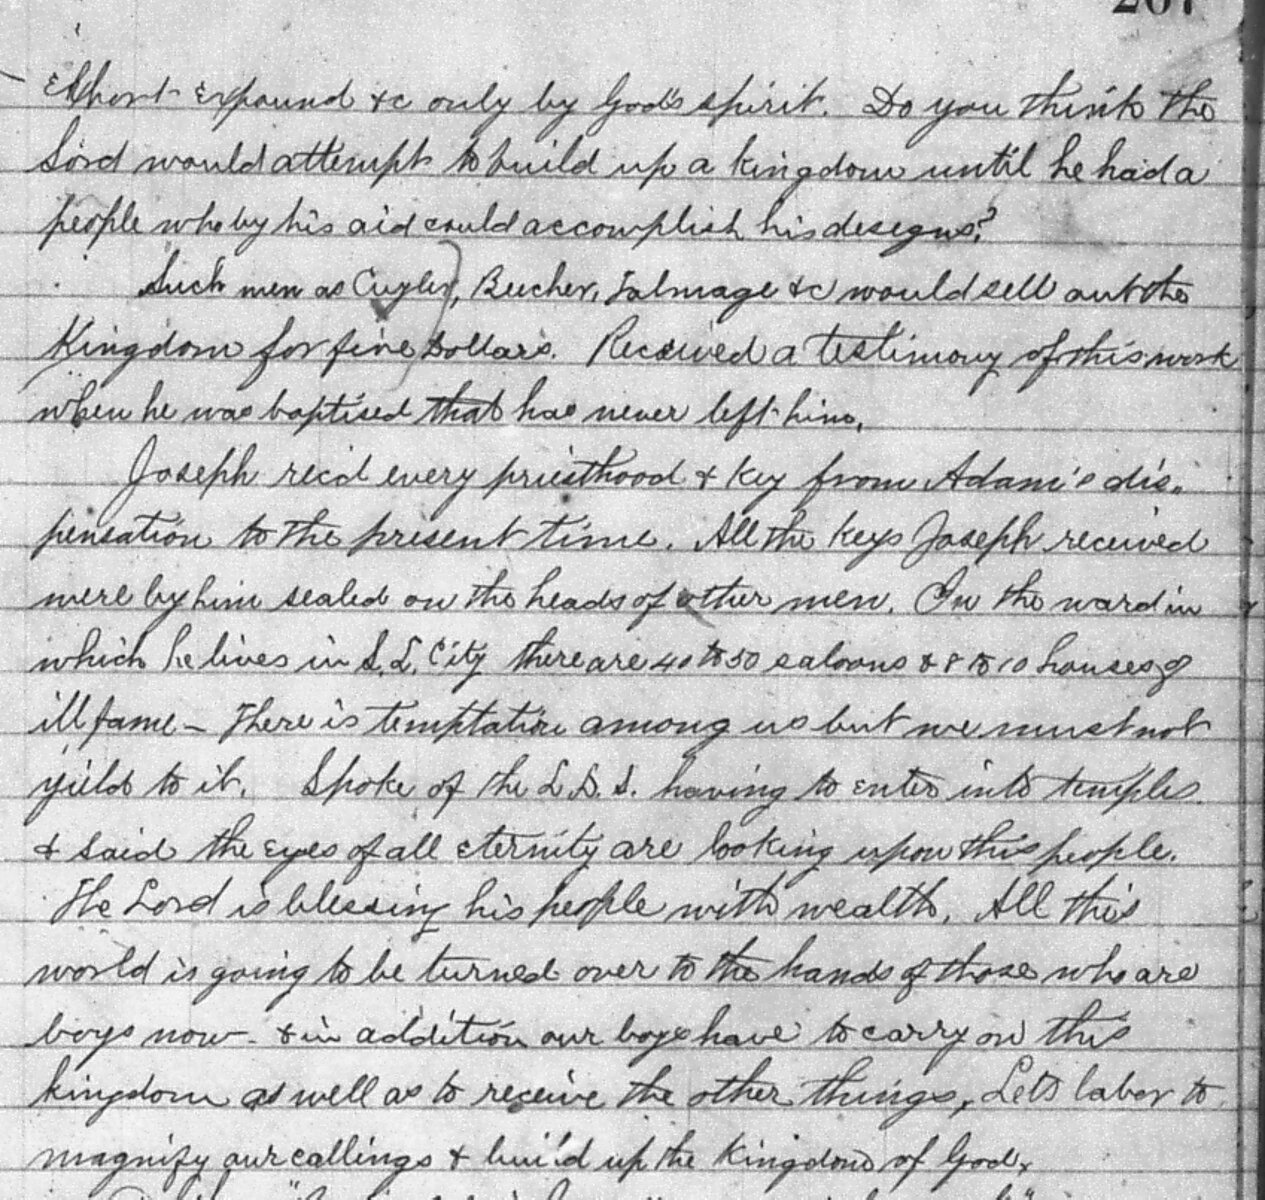 267
Exhort Expound &c only by God's spirit. Do you think the
Lord would attempt to build up a kingdom until he had a
people who by his aid could accomplish his designs?
Such men as Cuyler, Beecher, Talmage &c would sell out the
Kingdom for five Dollars. Received a testimony of this work
when he was baptised that has never left him.
Joseph rec'd every priesthood & key from Adam's dis-
pensation to the present time. All the keys Joseph received
were by him sealed on the heads of other men. In the ward in
which he lives in S. L. City there are 40 to 50 saloons & 8 to 10 houses of
ill fame - There is temptation among us but we must not
yield to it. Spoke of the L. D. S. having to enter into temples
& said the eyes of all eternity are looking upon this people.
The Lord is blessing his people with wealth. All this
world is going to be turned over to the hands of those who are
boys now - & in addition our boys have to carry on this
kingdom as well as to receive the other things, Lets labor to
magnify our callings & build up the Kingdom of God.